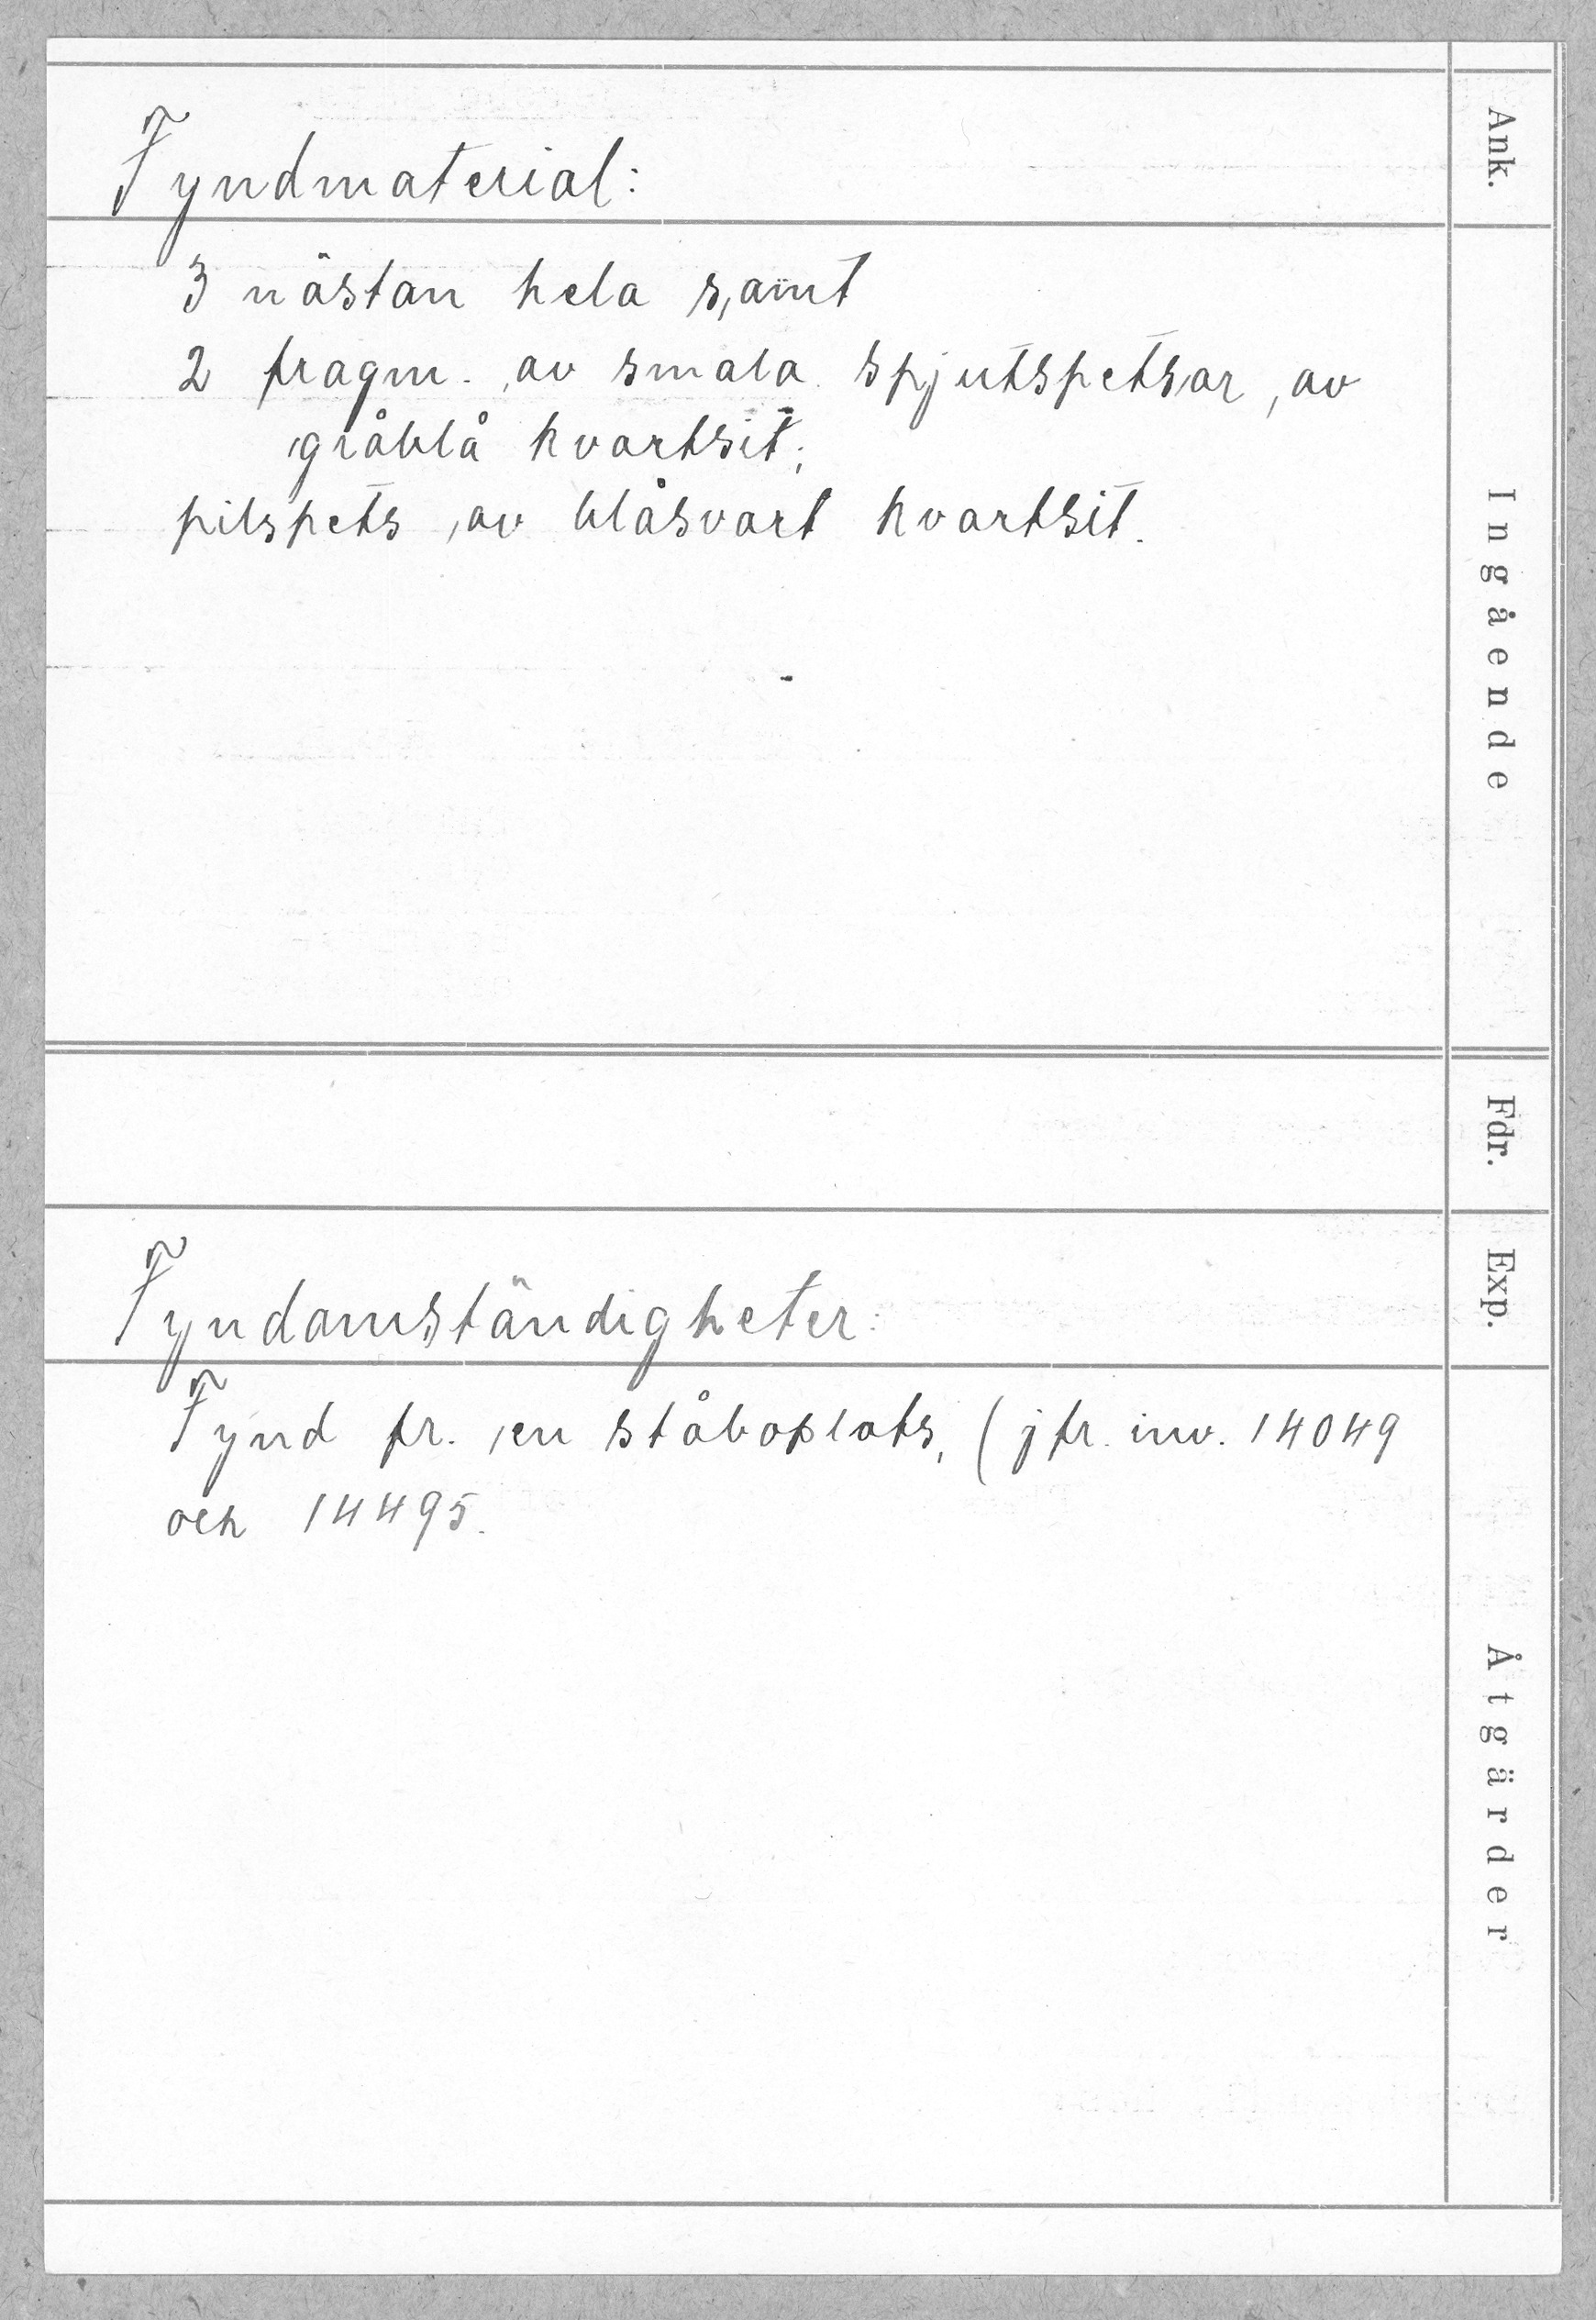 Ank.
Fyndmaterial:
Ingående
3 nästan hela samt
2 fragm. av smala spjutspetsar, av
gråblå kvartsit;
pilspets av blåsvart kvartsit.
Fdr.
Exp.
Fyndomständigheter:
Åtgärder
Fynd fr. en ståboplats, (jfr. inv. 14049
och 14495.